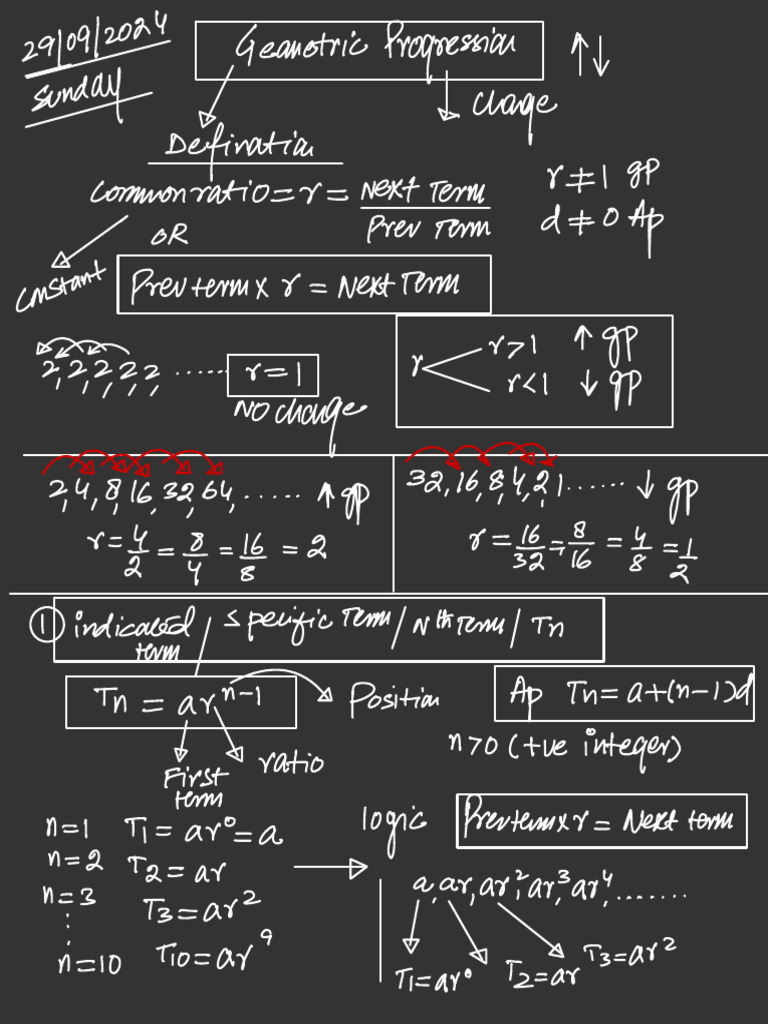 29/09/2024
Sunday
Geometric Progression ↑↓
Change
Defination
Common ratio = r = Next Term / Prev Term
r ≠ 1 gp
d ≠ 0 Ap
OR
Constant
Prev term x r = Next Term
2, 2, 2, 2, 2, ...... r = 1
No change
r
r > 1 ↑ gp
r < 1 ↓ gp
2, 4, 8, 16, 32, 64, ...... ↑ gp
r = 4/2 = 8/4 = 16/8 = 2
32, 16, 8, 4, 2, 1 ...... ↓ gp
r = 16/32 = 8/16 = 4/8 = 1/2
① indicated term / Specific Term / Nth Term / Tn
Tn = ar^(n-1)
Position
Ap Tn = a+(n-1)d
n>0 (+ve integer)
First term
ratio
n=1 T1 = ar^0 = a
n=2 T2 = ar
n=3 T3 = ar^2
⋮
n=10 T10 = ar^9
logic
Prev term x r = Next term
a, ar, ar^2, ar^3, ar^4, .......
T1 = ar^0 T2 = ar T3 = ar^2